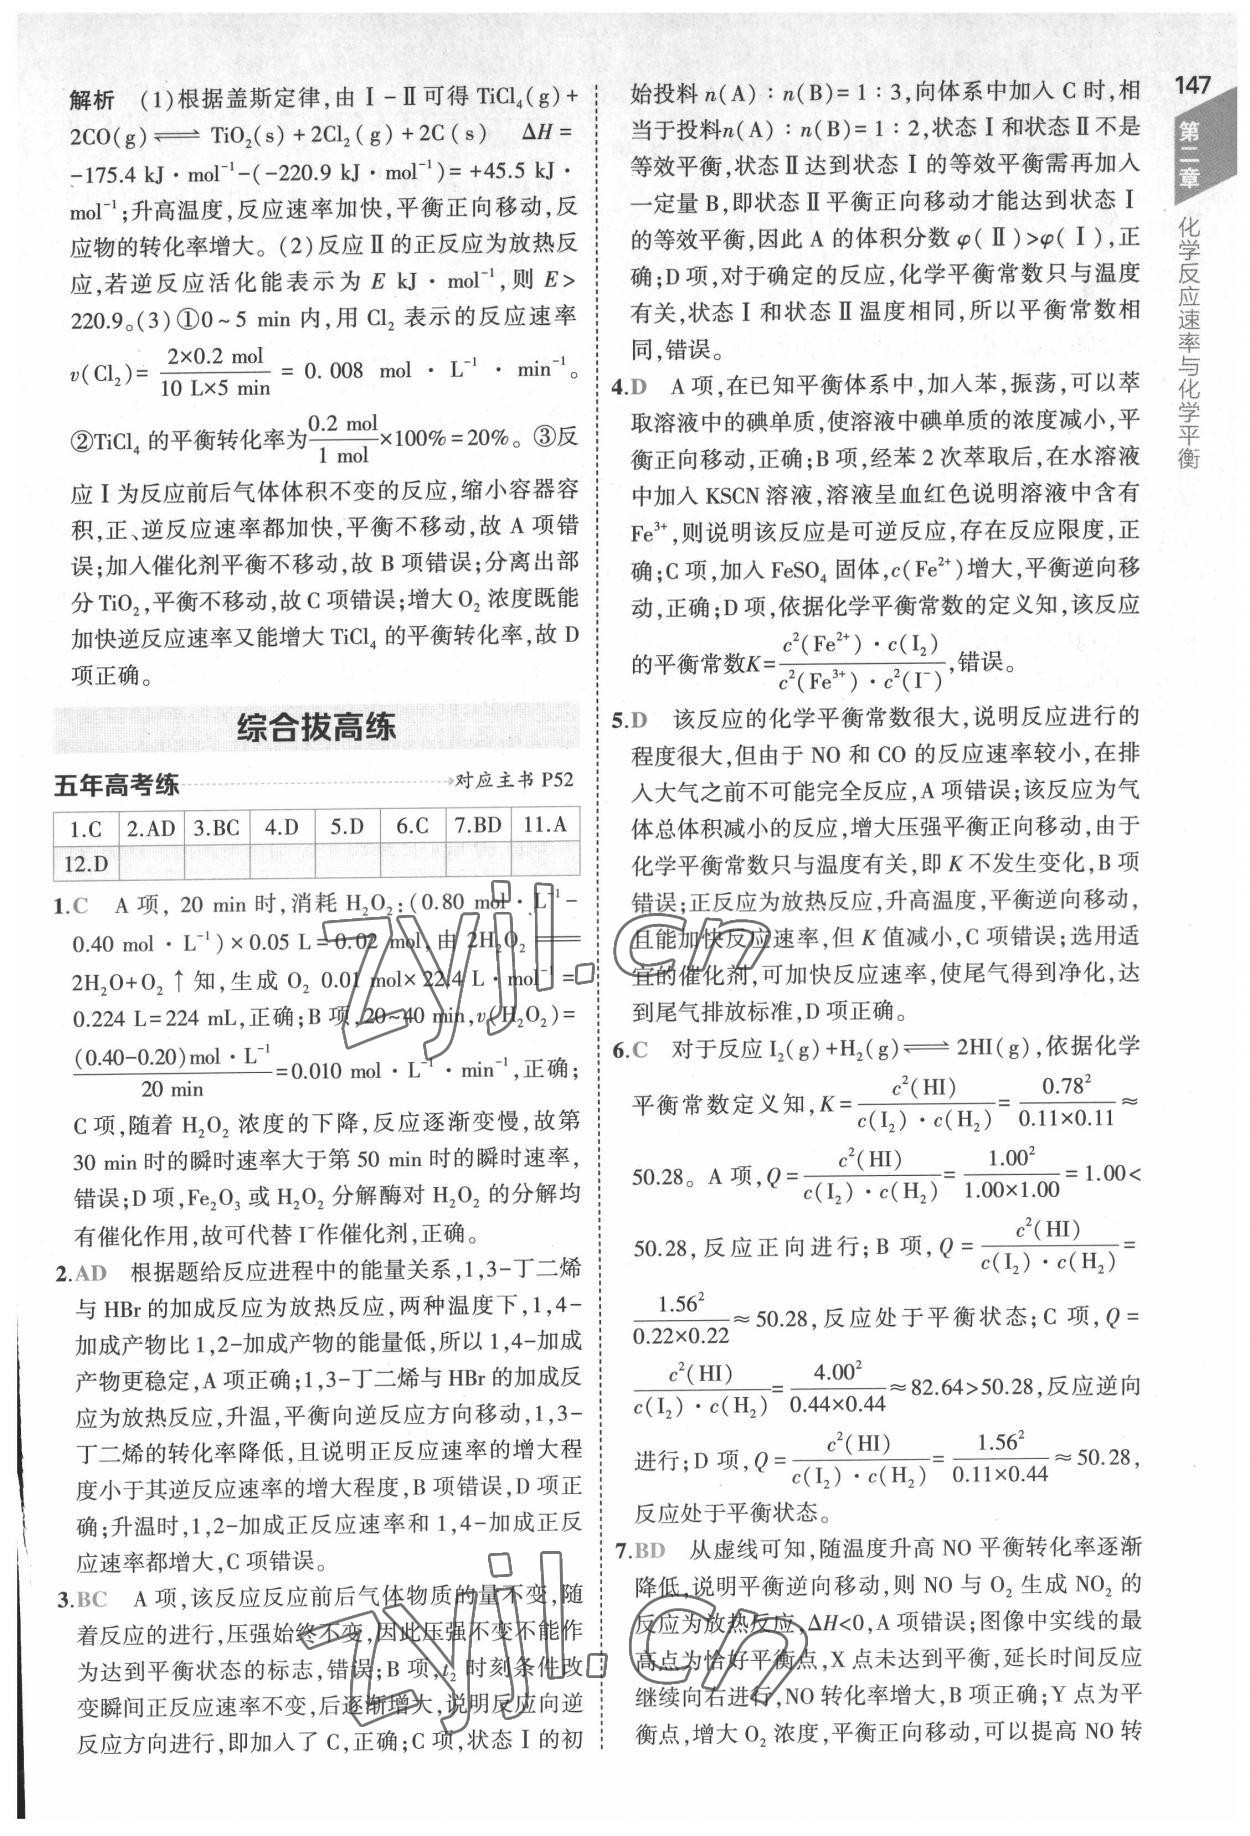 147
第二章 化学反应速率与化学平衡
解析 (1)根据盖斯定律,由Ⅰ-Ⅱ可得 TiCl₄(g)+
2CO(g)⇌ TiO₂(s)+2Cl₂(g)+2C(s) ΔH=
-175.4 kJ·mol⁻¹-(-220.9 kJ·mol⁻¹)=+45.5 kJ·
mol⁻¹;升高温度,反应速率加快,平衡正向移动,反
应物的转化率增大。(2)反应Ⅱ的正反应为放热反
应,若逆反应活化能表示为 E kJ·mol⁻¹,则 E>
220.9。(3)①0~5 min 内,用 Cl₂ 表示的反应速率
v(Cl₂)= (2×0.2 mol)/(10 L×5 min) = 0.008 mol·L⁻¹·min⁻¹。
②TiCl₄ 的平衡转化率为 (0.2 mol)/(1 mol) ×100%=20%。③反
应Ⅰ为反应前后气体体积不变的反应,缩小容器容
积,正、逆反应速率都加快,平衡不移动,故 A 项错
误;加入催化剂平衡不移动,故 B 项错误;分离出部
分 TiO₂,平衡不移动,故 C 项错误;增大 O₂ 浓度既能
加快逆反应速率又能增大 TiCl₄ 的平衡转化率,故 D
项正确。
综合拔高练
五年高考练 对应主书 P52
1.C 2.AD 3.BC 4.D 5.D 6.C 7.BD 11.A
12.D
1.C A 项, 20 min 时,消耗 H₂O₂:(0.80 mol·L⁻¹-
0.40 mol·L⁻¹)×0.05 L=0.02 mol,由 2H₂O₂ ══
2H₂O+O₂↑知,生成 O₂ 0.01 mol×22.4 L·mol⁻¹=
0.224 L=224 mL,正确;B 项,20~40 min,v(H₂O₂)=
((0.40-0.20)mol·L⁻¹)/(20 min)=0.010 mol·L⁻¹·min⁻¹,正确;
C 项,随着 H₂O₂ 浓度的下降,反应逐渐变慢,故第
30 min 时的瞬时速率大于第 50 min 时的瞬时速率,
错误;D 项,Fe₂O₃ 或 H₂O₂ 分解酶对 H₂O₂ 的分解均
有催化作用,故可代替 I⁻作催化剂,正确。
2.AD 根据题给反应进程中的能量关系,1,3-丁二烯
与 HBr 的加成反应为放热反应,两种温度下,1,4-
加成产物比 1,2-加成产物的能量低,所以 1,4-加成
产物更稳定,A 项正确;1,3-丁二烯与 HBr 的加成反
应为放热反应,升温,平衡向逆反应方向移动,1,3-
丁二烯的转化率降低,且说明正反应速率的增大程
度小于其逆反应速率的增大程度,B 项错误,D 项正
确;升温时,1,2-加成正反应速率和 1,4-加成正反
应速率都增大,C 项错误。
3.BC A 项,该反应反应前后气体物质的量不变,随
着反应的进行,压强始终不变,因此压强不变不能作
为达到平衡状态的标志,错误;B 项,t₂ 时刻条件改
变瞬间正反应速率不变,后逐渐增大,说明反应向逆
反应方向进行,即加入了 C,正确;C 项,状态Ⅰ的初
始投料 n(A):n(B)=1:3,向体系中加入 C 时,相
当于投料n(A):n(B)=1:2,状态Ⅰ和状态Ⅱ不是
等效平衡,状态Ⅱ达到状态Ⅰ的等效平衡需再加入
一定量 B,即状态Ⅱ平衡正向移动才能达到状态Ⅰ
的等效平衡,因此 A 的体积分数 φ(Ⅱ)>φ(Ⅰ),正
确;D 项,对于确定的反应,化学平衡常数只与温度
有关,状态Ⅰ和状态Ⅱ温度相同,所以平衡常数相
同,错误。
4.D A 项,在已知平衡体系中,加入苯,振荡,可以萃
取溶液中的碘单质,使溶液中碘单质的浓度减小,平
衡正向移动,正确;B 项,经苯 2 次萃取后,在水溶液
中加入 KSCN 溶液,溶液呈血红色说明溶液中含有
Fe³⁺,则说明该反应是可逆反应,存在反应限度,正
确;C 项,加入 FeSO₄ 固体,c(Fe²⁺)增大,平衡逆向移
动,正确;D 项,依据化学平衡常数的定义知,该反应
的平衡常数K= (c²(Fe²⁺)·c(I₂))/(c²(Fe³⁺)·c²(I⁻)),错误。
5.D 该反应的化学平衡常数很大,说明反应进行的
程度很大,但由于 NO 和 CO 的反应速率较小,在排
入大气之前不可能完全反应,A 项错误;该反应为气
体总体积减小的反应,增大压强平衡正向移动,由于
化学平衡常数只与温度有关,即 K 不发生变化,B 项
错误;正反应为放热反应,升高温度,平衡逆向移动,
且能加快反应速率,但 K 值减小,C 项错误;选用适
宜的催化剂,可加快反应速率,使尾气得到净化,达
到尾气排放标准,D 项正确。
6.C 对于反应 I₂(g)+H₂(g)⇌ 2HI(g),依据化学
平衡常数定义知,K= (c²(HI))/(c(I₂)·c(H₂)) = (0.78²)/(0.11×0.11) ≈
50.28。A 项,Q= (c²(HI))/(c(I₂)·c(H₂)) = (1.00²)/(1.00×1.00) =1.00<
50.28,反应正向进行;B 项,Q= (c²(HI))/(c(I₂)·c(H₂)) =
(1.56²)/(0.22×0.22) ≈50.28,反应处于平衡状态;C 项,Q=
(c²(HI))/(c(I₂)·c(H₂)) = (4.00²)/(0.44×0.44) ≈82.64>50.28,反应逆向
进行;D 项,Q= (c²(HI))/(c(I₂)·c(H₂)) = (1.56²)/(0.11×0.44) ≈50.28,
反应处于平衡状态。
7.BD 从虚线可知,随温度升高 NO 平衡转化率逐渐
降低,说明平衡逆向移动,则 NO 与 O₂ 生成 NO₂ 的
反应为放热反应,ΔH<0,A 项错误;图像中实线的最
高点为恰好平衡点,X 点未达到平衡,延长时间反应
继续向右进行,NO 转化率增大,B 项正确;Y 点为平
衡点,增大 O₂ 浓度,平衡正向移动,可以提高 NO 转
zyjl.cn
zyjl.cn